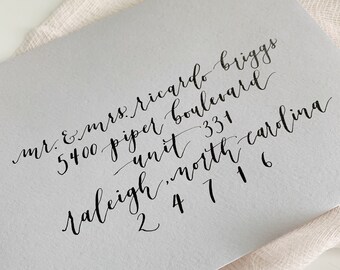 mr. & mrs. ricardo briggs
5400 piper boulevard
unit 331
raleigh, north carolina
24716